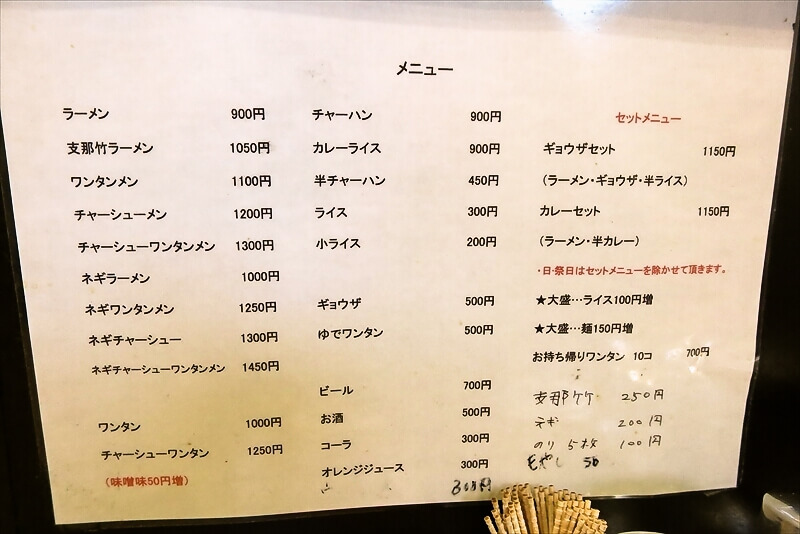 メニュー
ラーメン 900円
支那竹ラーメン 1050円
ワンタンメン 1100円
チャーシューメン 1200円
チャーシューワンタンメン 1300円
ネギラーメン 1000円
ネギワンタンメン 1250円
ネギチャーシュー 1300円
ネギチャーシューワンタンメン 1450円
ワンタン 1000円
チャーシューワンタン 1250円
(味噌味50円増)
チャーハン 900円
カレーライス 900円
半チャーハン 450円
ライス 300円
小ライス 200円
ギョウザ 500円
ゆでワンタン 500円
ビール 700円
お酒 500円
コーラ 300円
オレンジジュース 300円
300円
セットメニュー
ギョウザセット 1150円
(ラーメン・ギョウザ・半ライス)
カレーセット 1150円
(ラーメン・半カレー)
・日・祭日はセットメニューを除かせて頂きます。
★大盛…ライス100円増
★大盛…麺150円増
お持ち帰りワンタン 10コ 700円
支那竹 250円
ネギ 200円
のり 5枚 100円
モヤシ 50